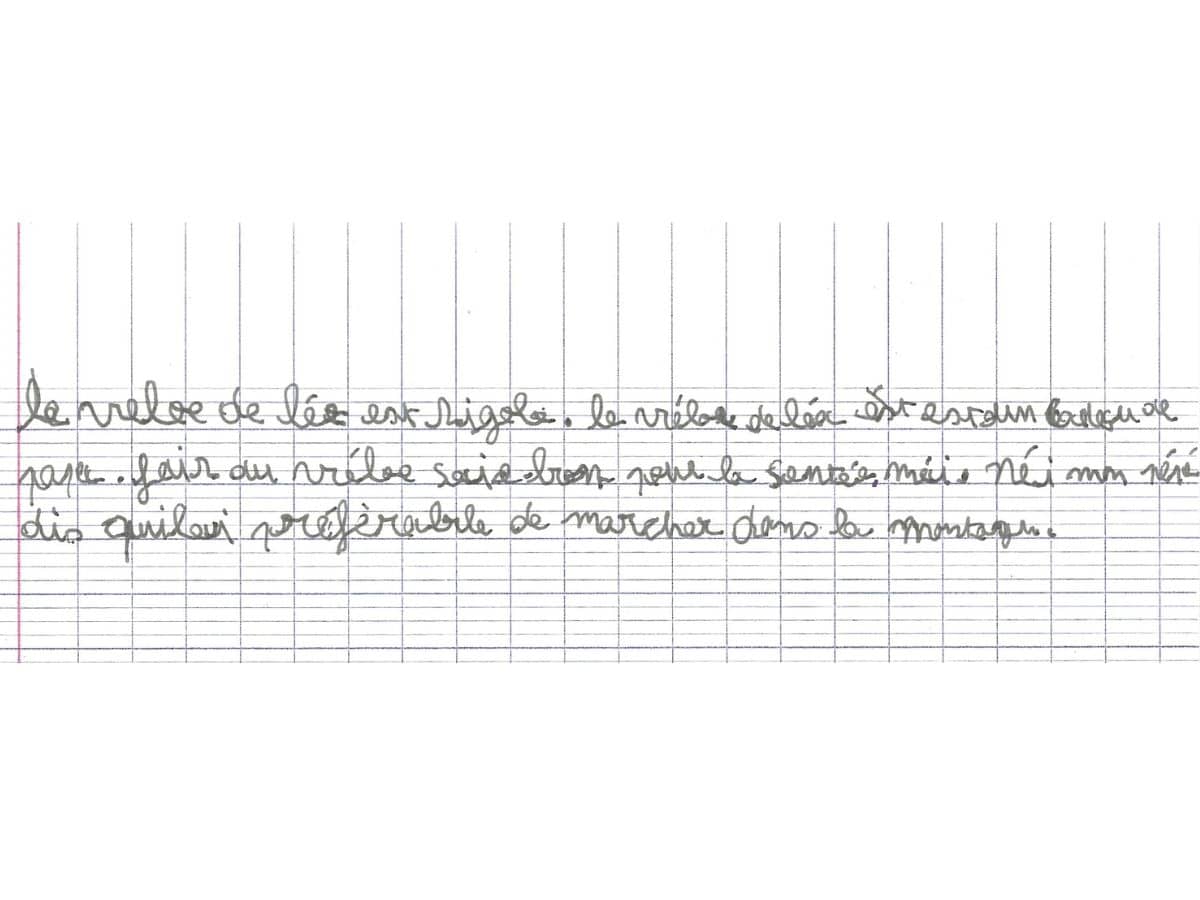 le veloe de léa est rigolo. le véloe de léa est est un cadeau de
papa. fair du véloe saie bon pour la santée, méi. Néi mon pépé
dis quilai préférable de marcher dans la montagn.